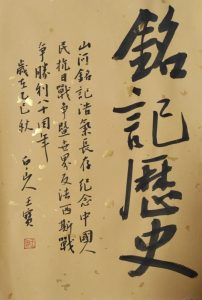 銘記歷史
山河銘記浩氣長存紀念中國人
民抗日戰爭暨世界反法西斯戰
爭勝利八十周年
歲在乙巳秋
白山人王寶